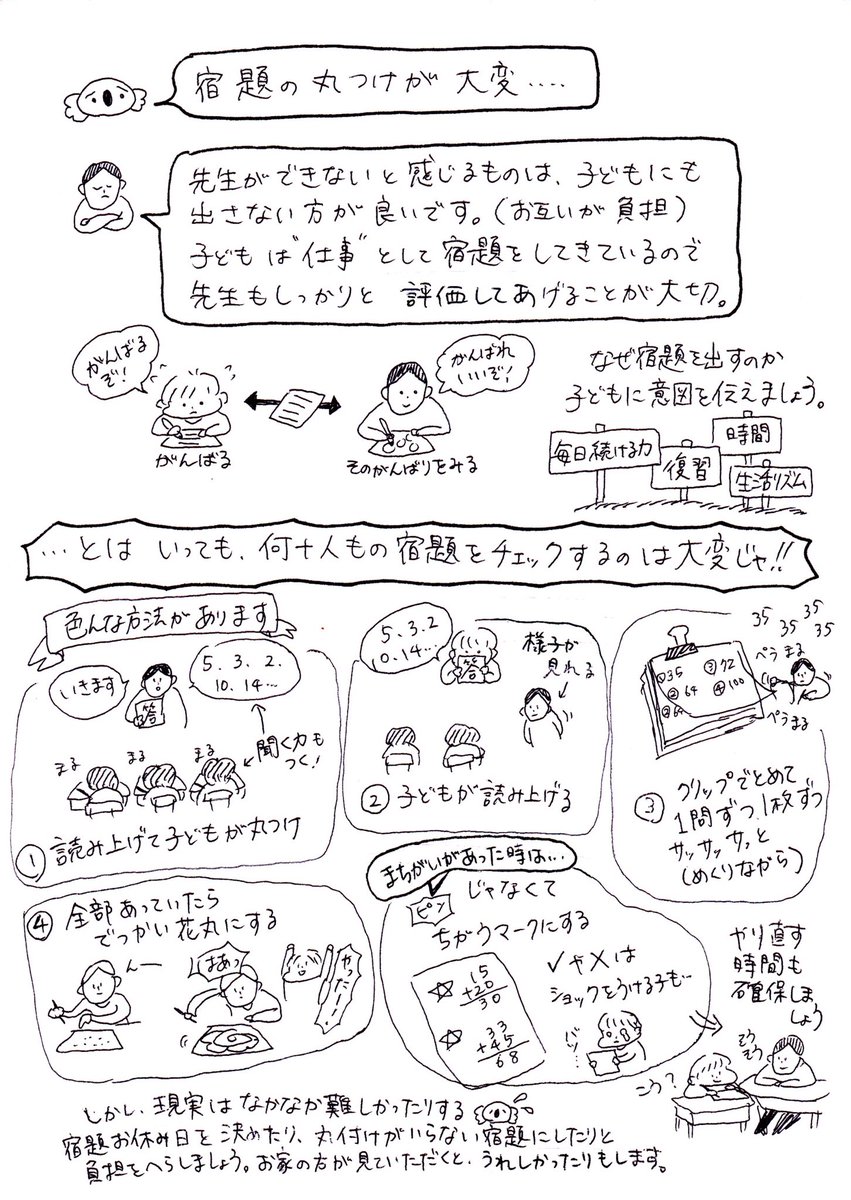 宿題の丸つけが大変‥‥
先生ができないと感じるものは、子どもにも
出さない方が良いです。(お互いが負担)
子どもは"仕事"として宿題をしてきているので
先生もしっかりと 評価してあげることが大切。
がんばる
ぞ!
がんばる
がんばれ
いいぞ!
そのがんばりをみる
なぜ宿題を出すのか
子どもに意図を伝えましょう。
毎日続ける力
復習
時間
生活リズム
…とは いっても、何十人もの宿題をチェックするのは大変じゃ!!
色んな方法があります
いきます
答
5.3.2.
10.14…
まる
まる
まる
聞く力も
つく!
① 読み上げて子どもが丸つけ
5.3.2
10.14…
答
様子が
見れる
② 子どもが読み上げる
35
35
35
35
ペラ まる
ペラ まる
①35
③72
②64
④100
②64
③ クリップでとめて
1問ずつ1枚ずつ
サッサッサッと
(めくりながら)
④ 全部あっていたら
でっかい花丸にする
んー
はあっ
やったー!
まちがいがあった時は…
ピン
じゃなくて
ちがうマークにする
15
+20
30
33
+45
68
✓や×は
ショックをうける子も…
やり直す
時間も
確保しま
しょう
こう?
そう
そう
しかし、現実はなかなか難しかったりする
宿題お休み日を決めたり、丸付けがいらない宿題にしたりと
負担をへらしましょう。お家の方が見ていただくと、うれしかったりもします。